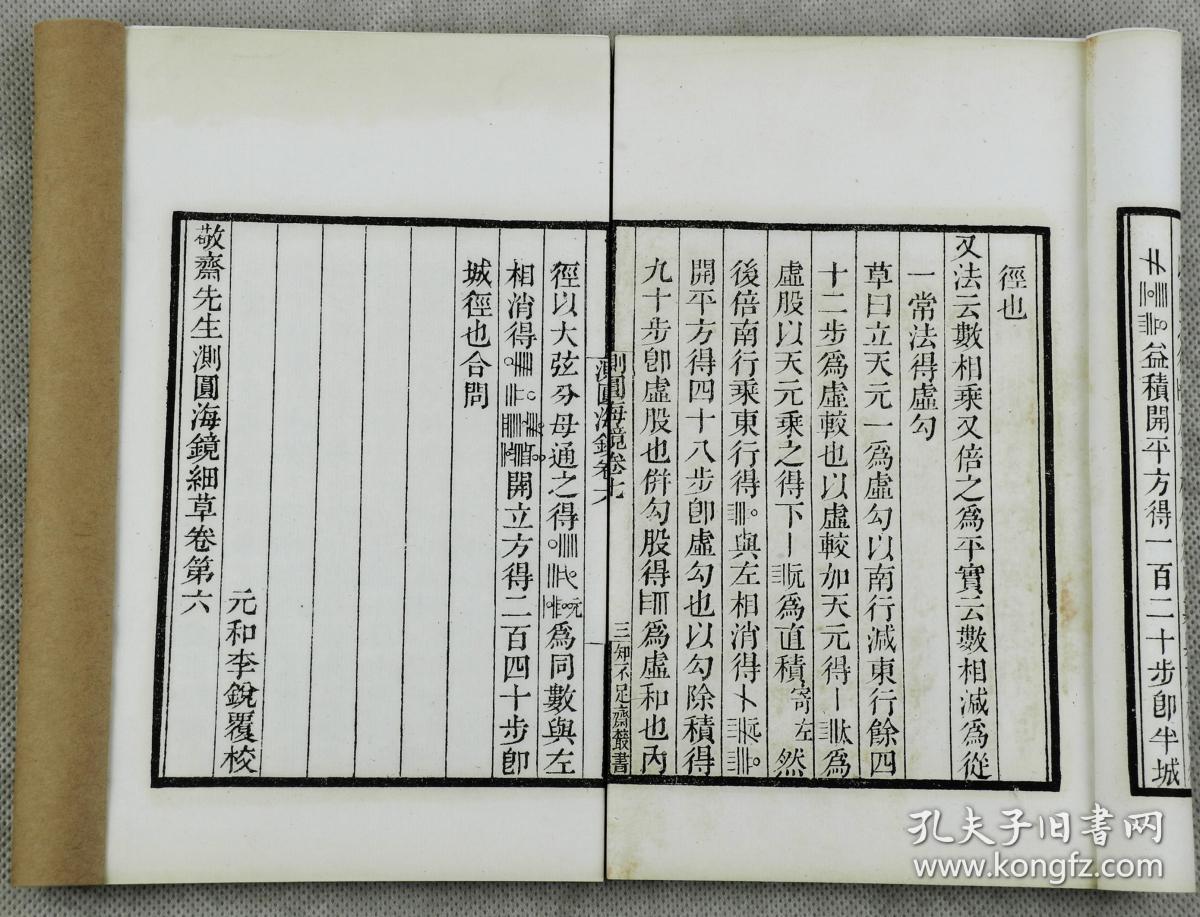 益積開平方得一百二十步卽半城
徑也
又法云數相乘又倍之為平實云數相減為從
一常法得虛勾
草曰立天元一為虛勾以南行減東行餘四
十二步為虛較也以虛較加天元得為
虛股以天元乘之得下元為直積寄左然
後倍南行乘東行得與左相消得
開平方得四十八步卽虛勾也以勾除積得
九十步卽虛股也併勾股得為虛和也內
測圓海鏡卷七
三
知不足齋叢書
測圓海鏡卷六
徑以大弦分母通之得元為同數與左
相消得開立方得二百四十步卽
城徑也合問
元和李銳覆校
敬齋先生測圓海鏡細草卷第六
孔夫子旧书网
www.kongfz.com